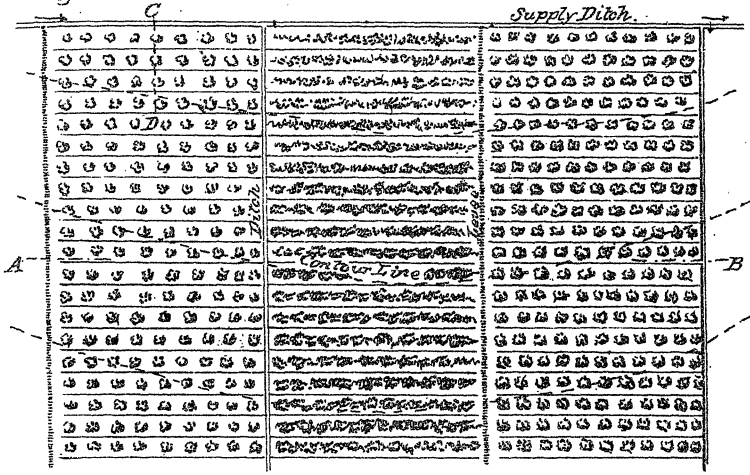 C
Supply Ditch.
D
Ditch
Levee
A
Contour Line
B